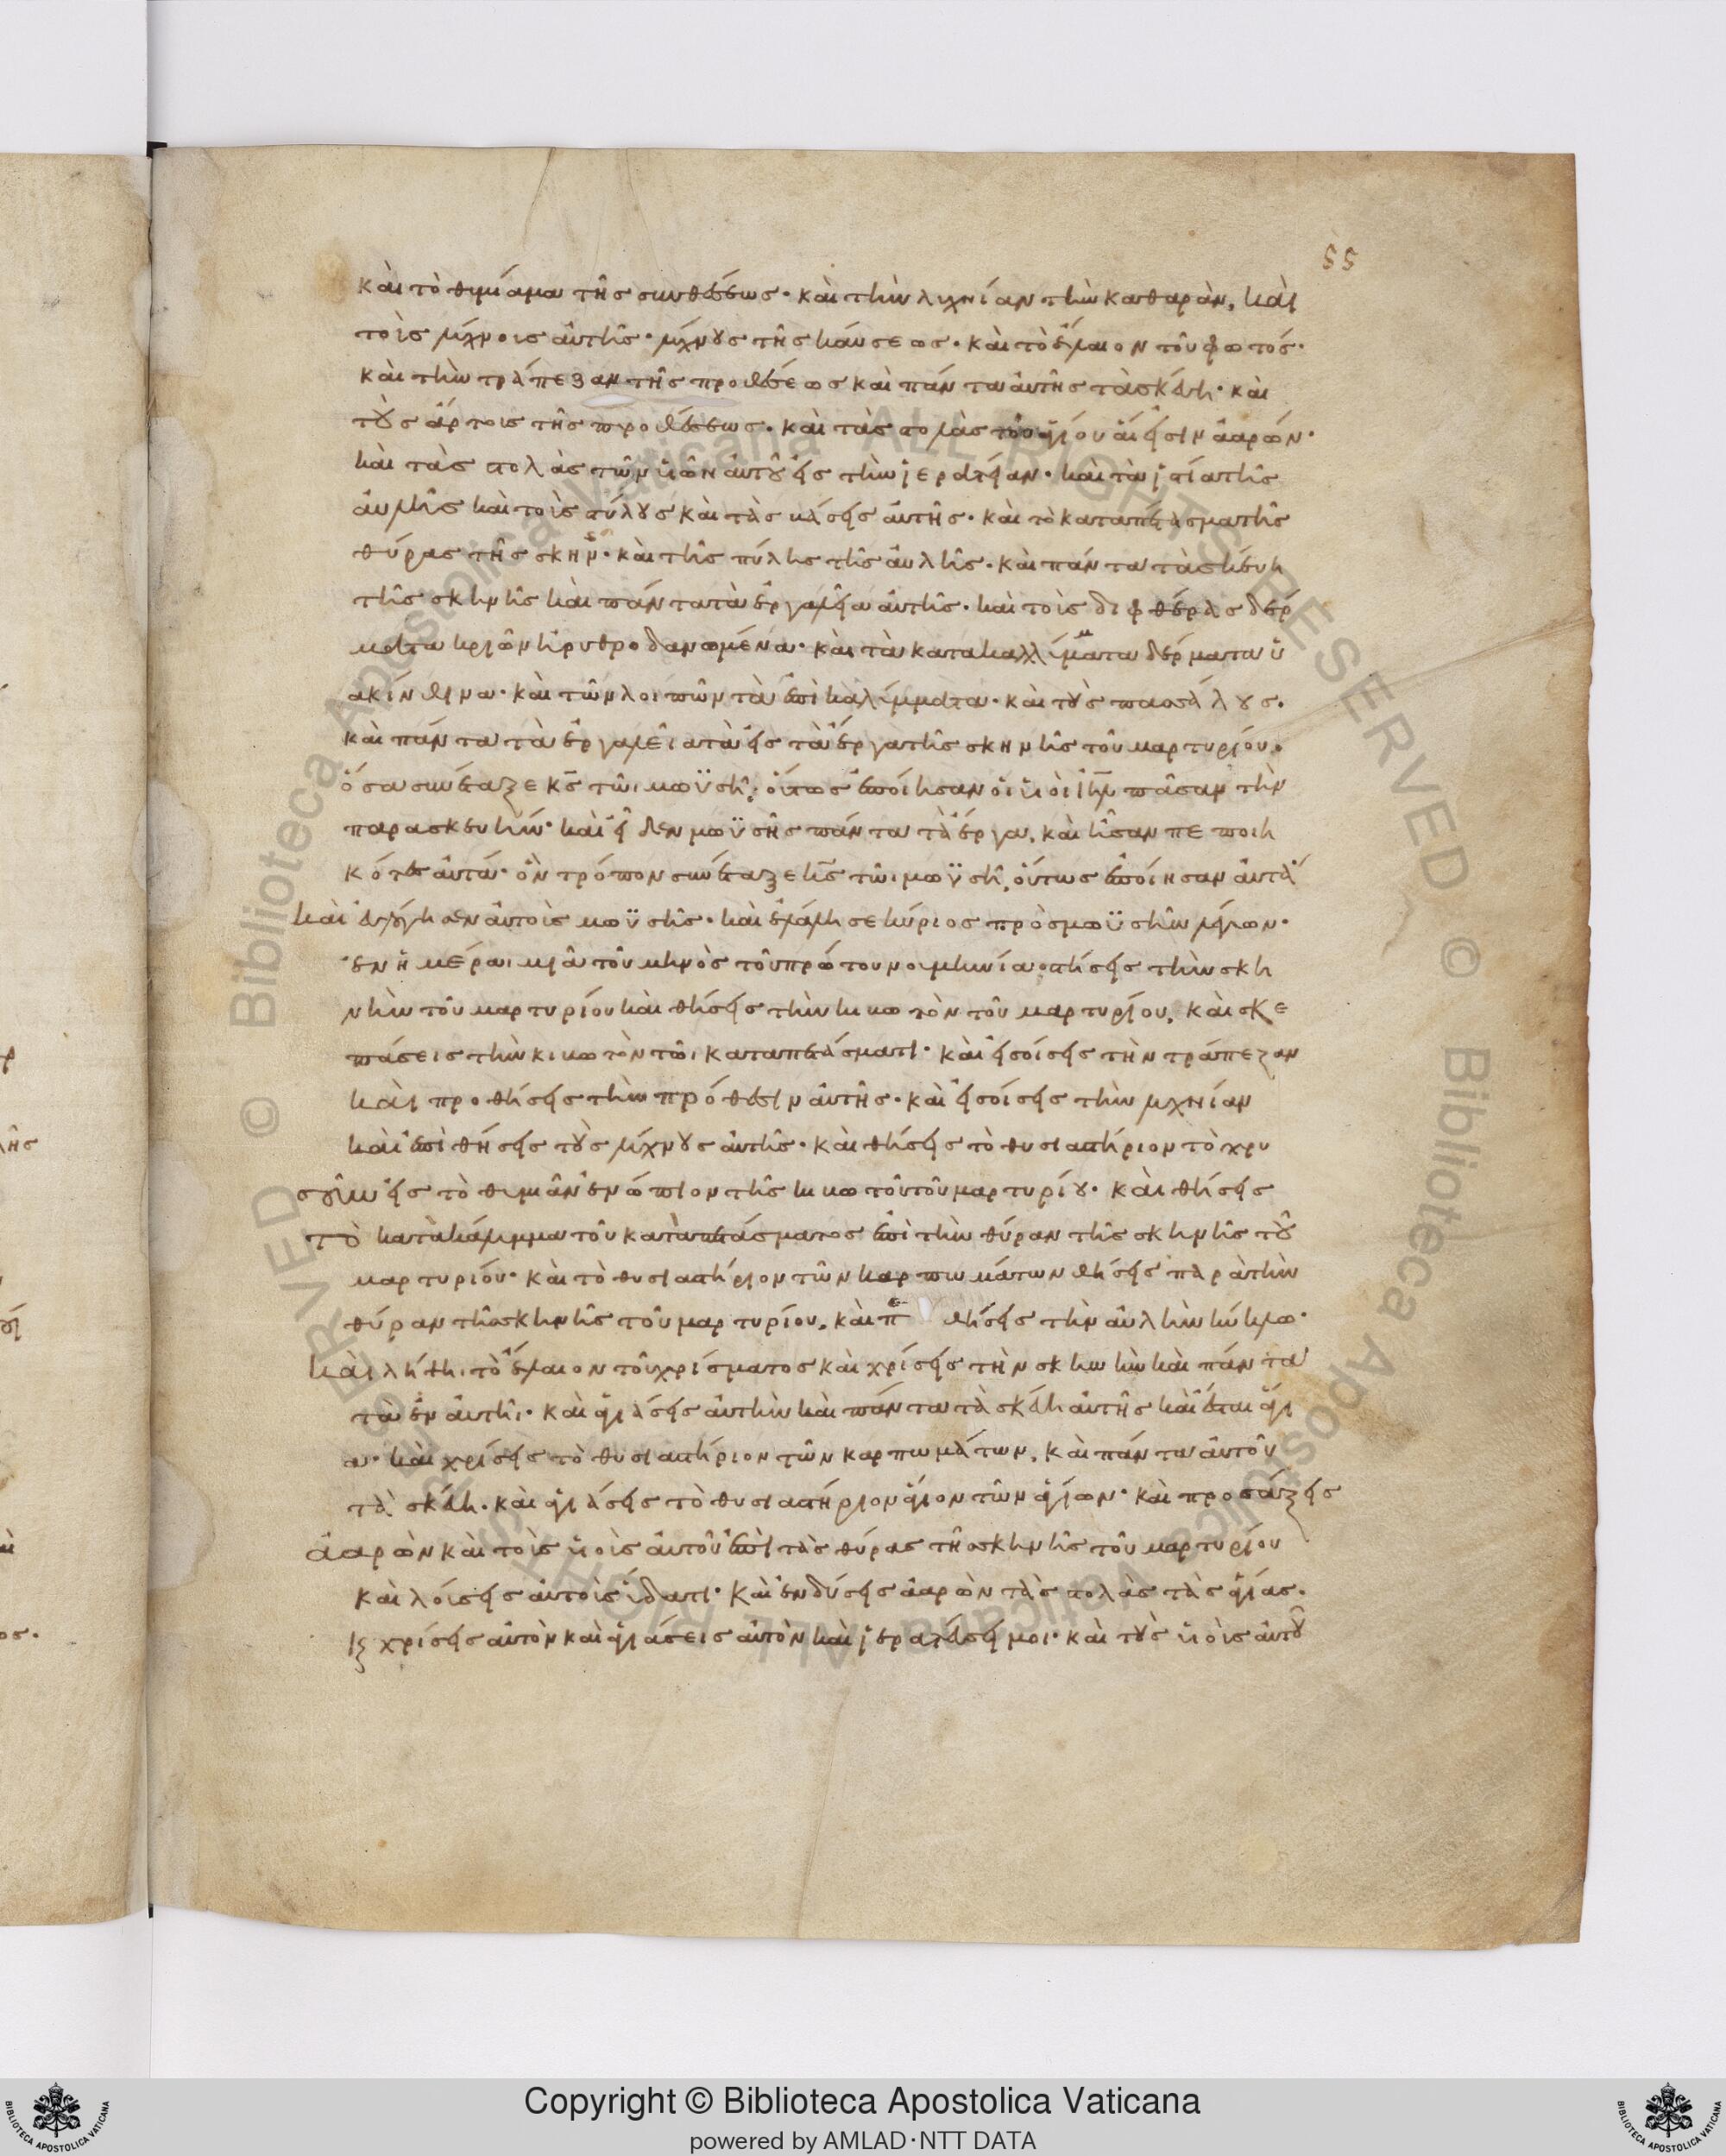 55
καὶ τὸ θυμίαμα τῆς συνθέσεως· καὶ τὴν λυχνίαν τὴν καθαρὰν, καὶ
τοὶς λύχνοις αὐτῆς· λύχνους τῆς καύσεως· καὶ τὸ ἔλαιον τοῦ φωτός·
καὶ τὴν τράπεζαν τῆς προθέσεως καὶ πάντα αὐτῆς τὰ σκεύη· καὶ
τοὺς ἄρτοις τῆς προθέσεως· καὶ τὰς στολὰς τοῦ ἁγίου αἵ εἰσιν ἀαρών·
καὶ τὰς στολὰς τῶν υἱῶν αὐτοῦ εἰς τὴν ἱερατείαν· καὶ τὰ ἱστία τῆς
αὐλῆς καὶ τοὶς στύλους καὶ τὰς βάσεις αὐτῆς· καὶ τὸ καταπέτασμα τῆς
θύρας τῆς σκην· καὶ τῆς πύλης τῆς αὐλῆς· καὶ πάντα τὰ σκεύη
τῆς σκηνῆς καὶ πάντα τὰ ἐργαλεῖα αὐτῆς· καὶ τοὶς διφθέρας δέρ
ματα κριῶν ἠρυθροδανωμένα· καὶ τὰ κατακαλλύμματα δέρματα ὑ
ακίνθινα· καὶ τῶν λοιπῶν τὰ ἐπικαλύμματα· καὶ τοὺς πασσάλους·
καὶ πάντα τὰ ἐργαλεῖα τὰ εἰς τὰ ἔργα τῆς σκηνῆς τοῦ μαρτυρίου·
ὅσα συνέταξε κς τῶι μωϋσῆ· οὕτως ἐποίησαν οἱ υἱοὶ ιηλ πᾶσαν τὴν
παρασκευήν· καὶ εἶδεν μωϋσῆς πάντα τὰ ἔργα, καὶ ἦσαν πεποιη
κότες αὐτά· ὃν τρόπον συνέταξε κς τῶι μωϋσῆ, οὕτως ἐποίησαν αὐτά
καὶ εὐλόγησεν αὐτοὶς μωϋσῆς· καὶ ἐλάλησε κύριος πρὸς μωϋσῆν λέγων·
ἐν ἡμέραι μιᾶ τοῦ μηνὸς τοῦ πρώτου νουμηνία στήσεις τὴν σκη
νὴν τοῦ μαρτυρίου καὶ θήσεις τὴν κιβωτὸν τοῦ μαρτυρίου, καὶ σκε
πάσεις τὴν κιβωτὸν τῶι καταπετάσματι· καὶ εἰσοίσεις τὴν τράπεζαν
καὶ προθήσεις τὴν πρόθεσιν αὐτῆς· καὶ εἰσοίσεις τὴν λυχνίαν
καὶ ἐπιθήσεις τοὺς λύχνους αὐτῆς· καὶ θήσεις τὸ θυσιαστήριον τὸ χρυ
σοῦν εἰς τὸ θυμιᾶν ἐνώπιον τῆς κιβωτοῦ τοῦ μαρτυρίου· καὶ θήσεις
τὸ κατακάλυμμα τοῦ καταπετάσματος ἐπὶ τὴν θύραν τῆς σκηνῆς τοῦ
μαρτυρίου· καὶ τὸ θυσιαστήριον τῶν καρπωμάτων θήσεις παρὰ τὴν
θύραν τῆς σκηνῆς τοῦ μαρτυρίου, καὶ πε θήσεις τὴν αὐλὴν κύκλω·
καὶ λήψη τὸ ἔλαιον τοῦ χρίσματος καὶ χρίσεις τὴν σκηνὴν καὶ πάντα
τὰ ἐν αὐτῆι· καὶ ἁγιάσεις αὐτὴν καὶ πάντα τὰ σκεύη αὐτῆς καὶ ἔσται ἁγί
α· καὶ χρίσεις τὸ θυσιαστήριον τῶν καρπωμάτων, καὶ πάντα αὐτοῦ
τὰ σκεύη· καὶ ἁγιάσεις τὸ θυσιαστήριον ἅγιον τῶν ἁγίων· καὶ προσάξεις
ἀαρὼν καὶ τοὶς υἱοὶς αὐτοῦ ἐπὶ τὰς θύρας τῆς σκηνῆς τοῦ μαρτυρίου
καὶ λούσεις αὐτοὶς ὕδατι· καὶ ἐνδύσεις ἀαρὼν τὰς στολὰς τὰς ἁγίας·
κ χρίσεις αὐτὸν καὶ ἁγιάσεις αὐτὸν καὶ ἱερατεύσει μοι· καὶ τοὺς υἱοὶς αὐτοῦ
Copyright © Biblioteca Apostolica Vaticana
powered by AMLAD·NTT DATA